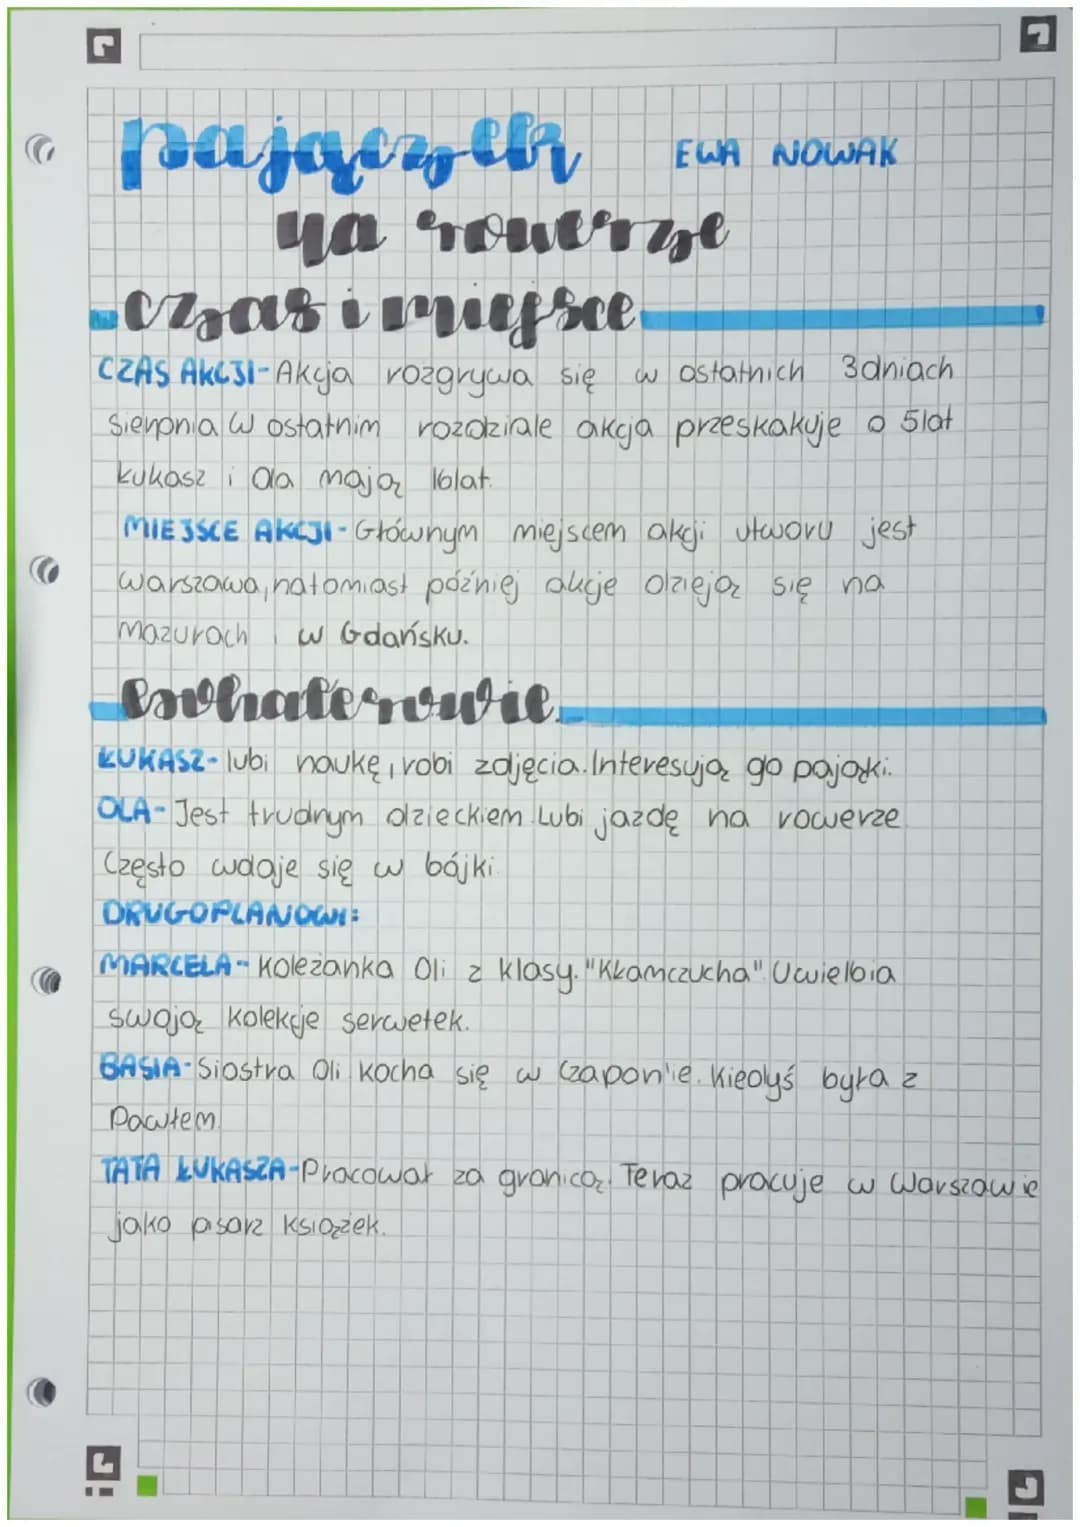 pajączek EWA NOWAK
na rowerze
czas i miejsce
CZAS AKCJI-Akcja rozgrywa się w ostatnich 3dniach
Sierpnia W ostatnim rozdziale akcja przeskakuje o 5lat
Łukasz i Ola mają 16lat.
MIEJSCE AKCJI-Głównym miejscem akcji utworu jest
Warszawa,natomiast później akcje dzieją się na
Mazurach i w Gdańsku.
bohaterowie
ŁUKASZ-lubi naukę,robi zdjęcia.Interesują go pająki.
OLA-Jest trudnym dzieckiem.Lubi jazdę na rowerze.
Często wdaje się w bójki
DRUGOPLANOWI:
MARCELA-Koleżanka Oli z klasy."Kłamczucha".Uwielbia
swoją kolekcje serwetek.
BASIA-Siostra Oli kocha się w Czapon'ie. Kiedyś była z
Pawłem.
TATA ŁUKASZA-Pracował za granicą. Teraz pracuje w Warszawie
jako pisarz książek.